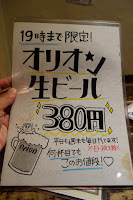 19時まで限定!
オリオン
生ビール
380円
平日も週末も毎日やってます!
何杯目でも
このお値段!♡